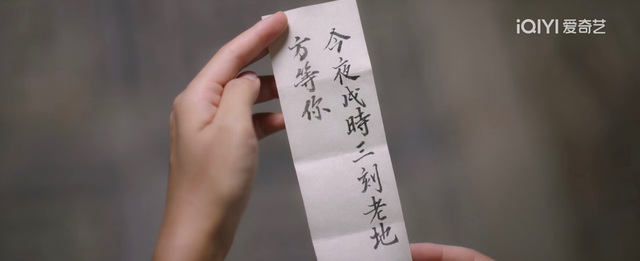 今夜戌時三刻老地
方等你
iQIYI 爱奇艺